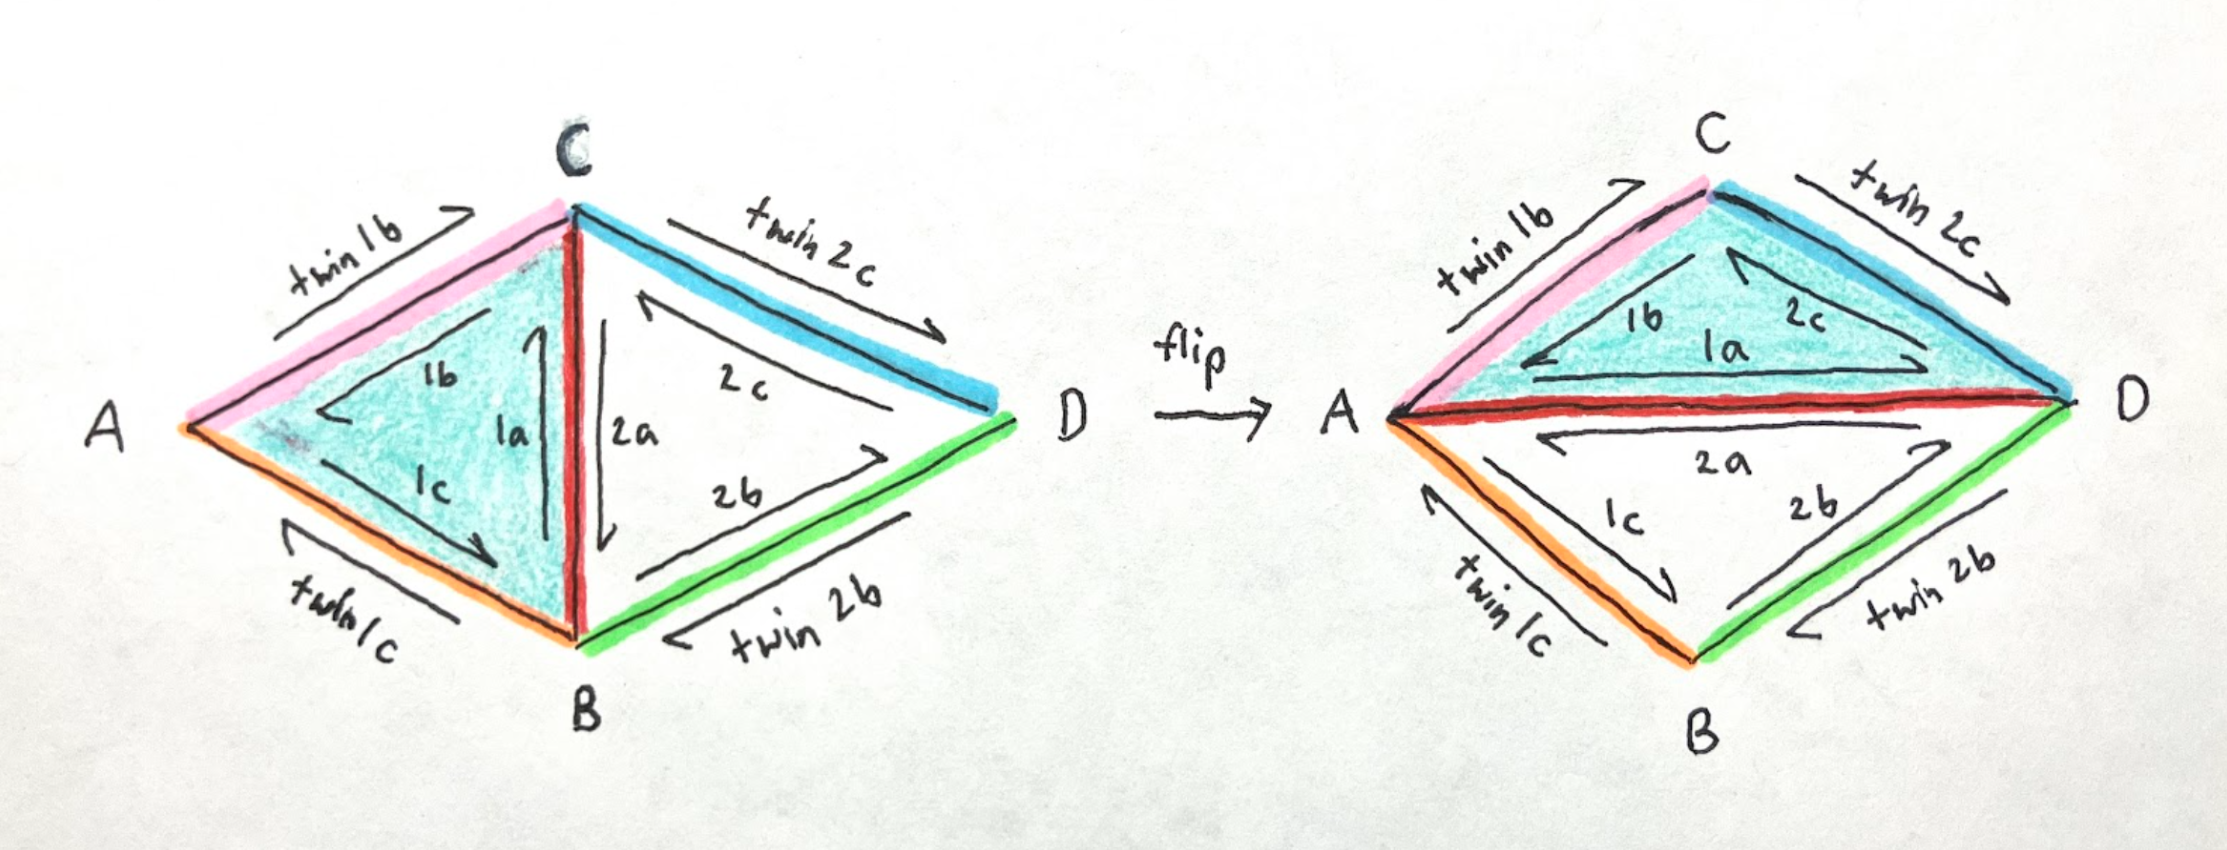 C
twin 1b
twin 2c
1b
1a
2a
2c
A
D
1c
2b
twin 1c
twin 2b
B
flip
C
twin 1b
twin 2c
1b
2c
1a
A
D
2a
1c
2b
twin 1c
twin 2b
B